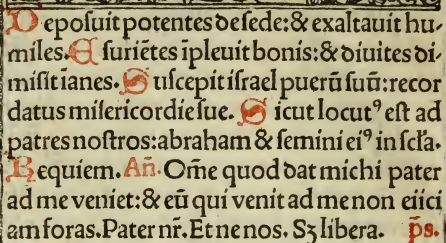 Deposuit potentes de sede:& exaltauit hu
miles. Esuriētes īpleuit bonis:& diuites di
misit ianes. Suscepit israel puerū suū:recor
datus misericordie sue. Sicut locutꝰ est ad
patres nostros:abraham & semini eiꝰ in scl̄a.
Requiem. An̄. Om̄e quod dat michi pater
ad me veniet:& eū qui venit ad me non eiici
am foras. Pater nr̄. Et ne nos. Sꝫ libera. p̄s.